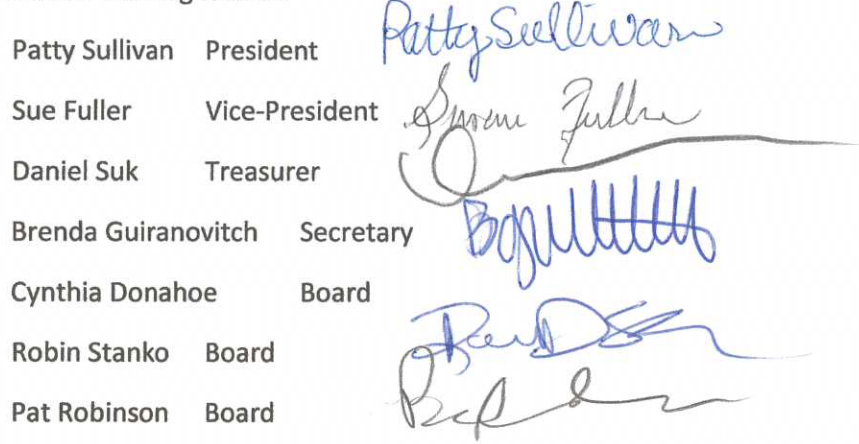 Patty Sullivan President Patty Sullivan
Sue Fuller Vice-President Susan Fuller
Daniel Suk Treasurer
Brenda Guiranovitch Secretary
Cynthia Donahoe Board
Robin Stanko Board
Pat Robinson Board